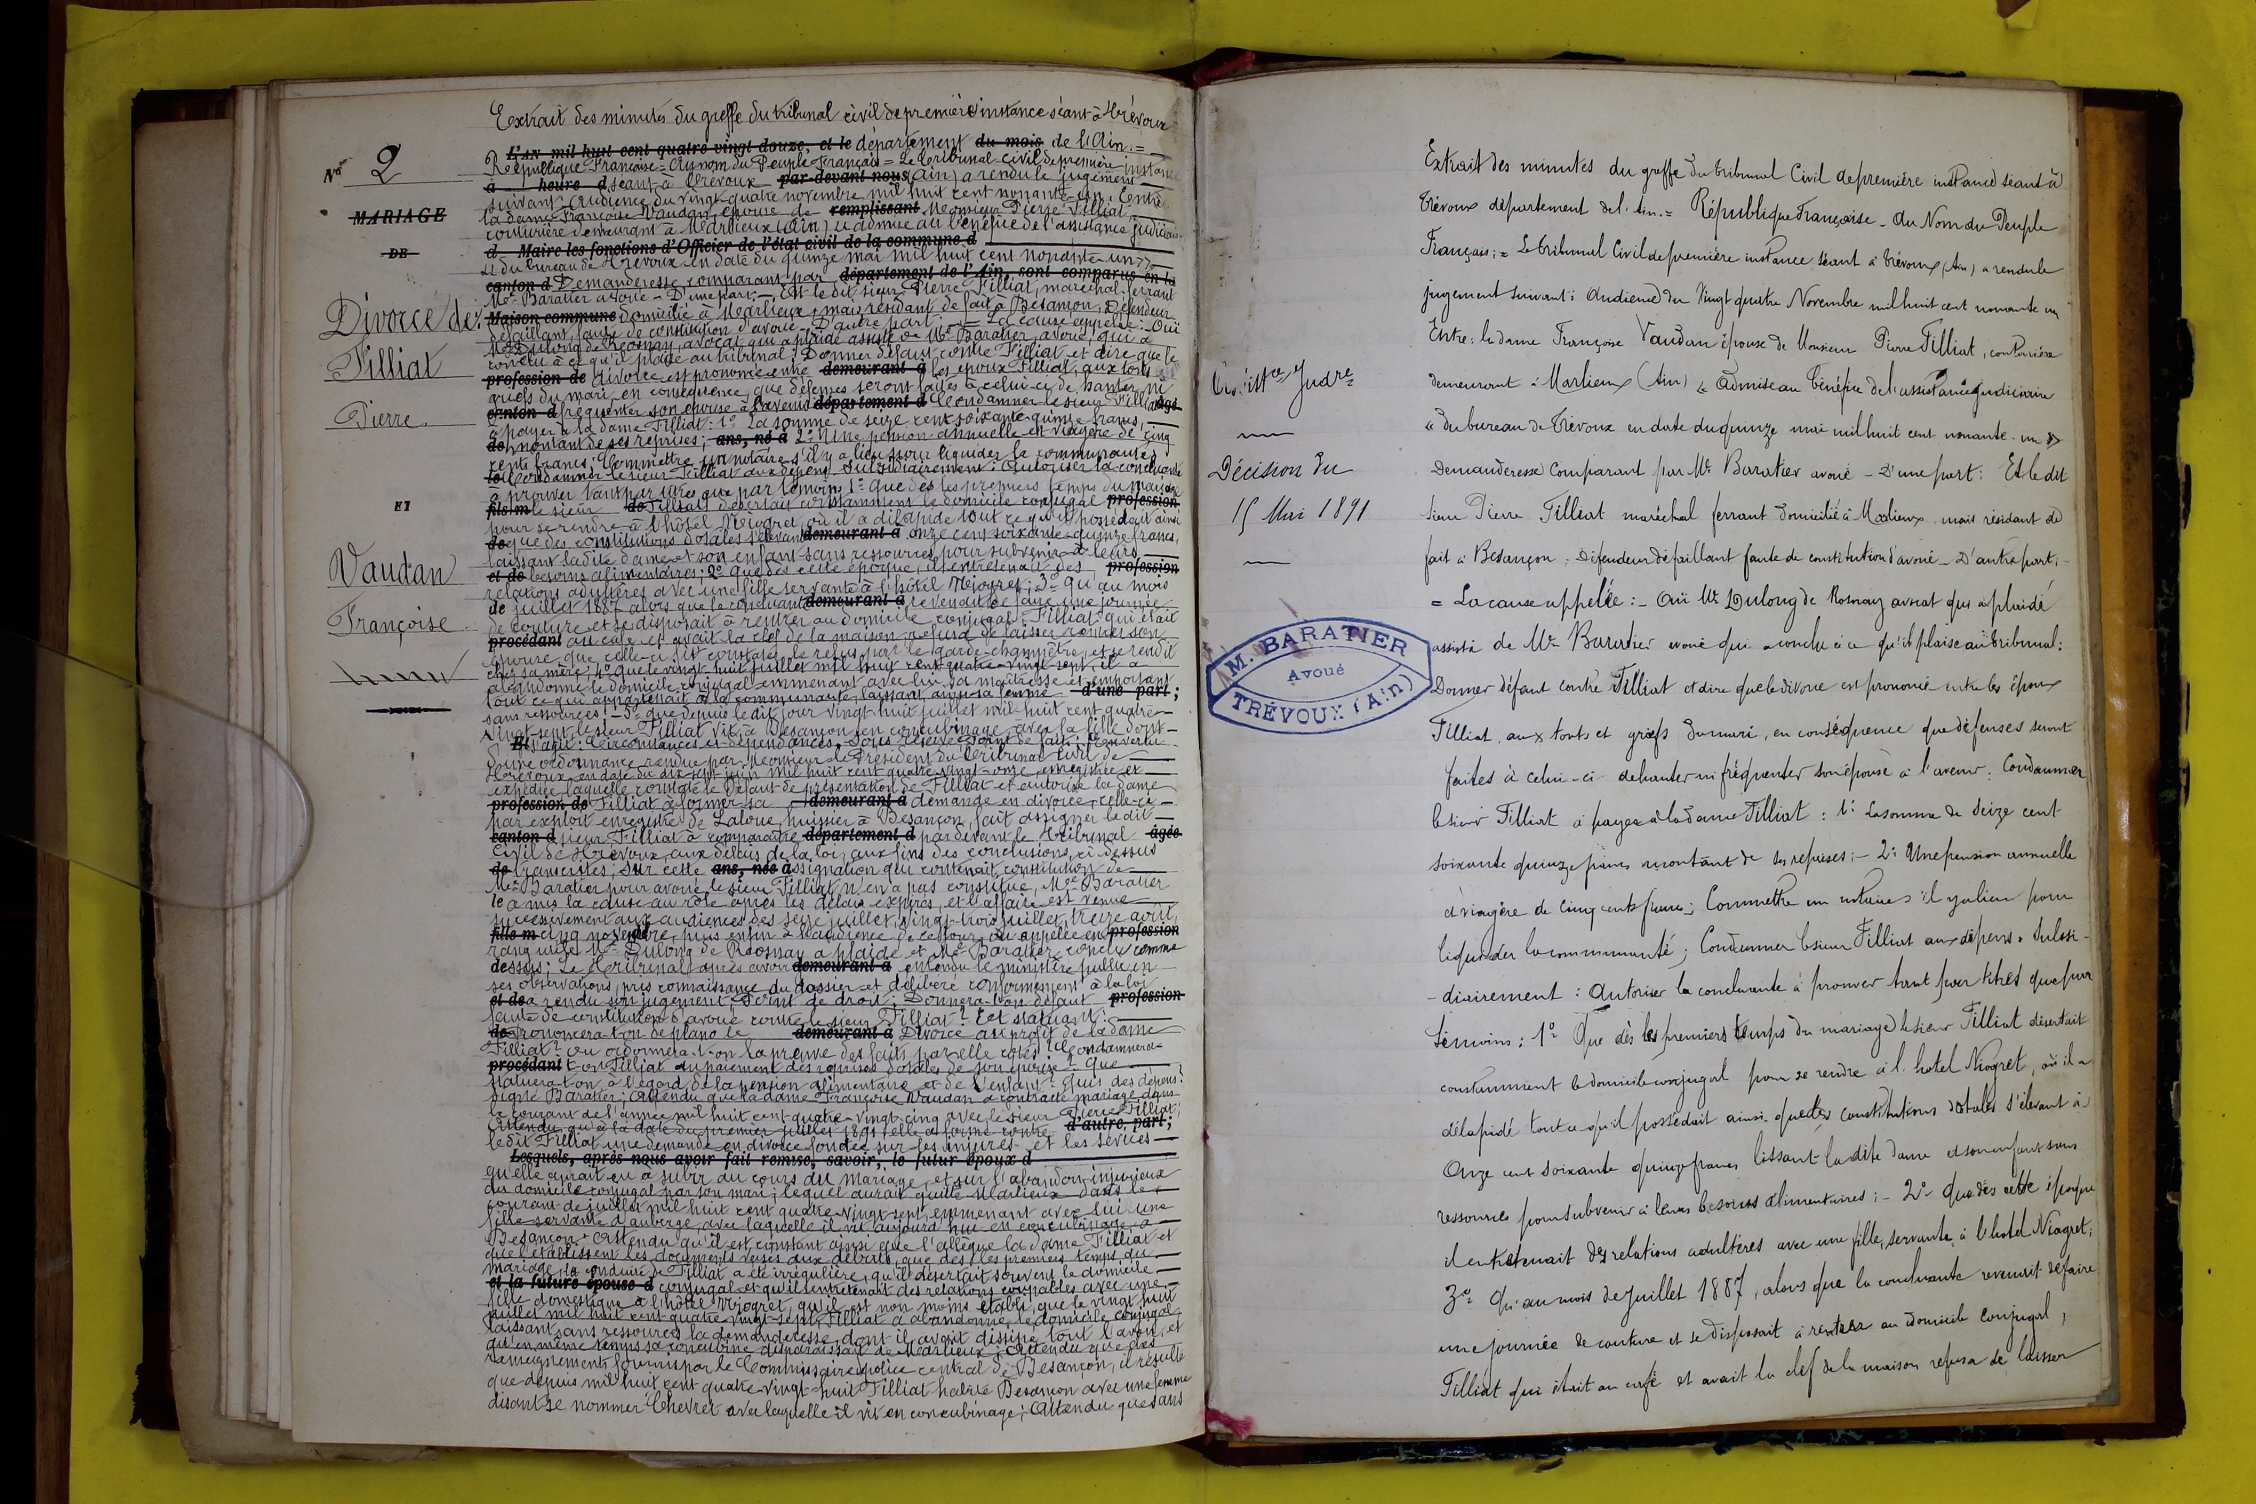 Extrait des minutes du greffe du tribunal civil de première instance séant à Trévoux
L'AN mil huit cent quatre vingt douze, et le département du mois de l'Ain.=
République Française = Au nom du Peuple Français = Le Tribunal civil de première instance
à heure d séant à Trévoux par-devant nous (Ain) a rendu le jugement
suivant: Audience du vingt quatre novembre mil huit cent nonante-un. Entre:
la dame Françoise Vaudan, épouse de remplissant Monsieur Pierre Filliat,
couturière demeurant à Marlieux (Ain) « admise au bénéfice de l'assistance judiciaire
d Maire les fonctions d'Officier de l'état civil de la commune d
« du bureau de Trévoux en date du quinze mai mil huit cent nonante-un »
canton d Demanderesse comparant par département de l'Ain, sont comparus en la
Me Baratier avoué - D'une part. - Et le dit sieur Pierre Filliat, maréchal-ferrant
Maison commune domicilié à Marlieux, mais résidant de fait à Besançon, Défendeur
défaillant, faute de constitution d'avoué - D'autre part. - = La cause appelée: - Ouï
Me Dulong de Rosnay, avocat qui a plaidé assisté de Me Baratier, avoué, qui a
conclu à ce qu'il plaise au tribunal: Donner défaut contre Filliat et dire que le
profession de divorce est prononcé entre demeurant à les époux Filliat, aux torts et
griefs du mari, en conséquence, que défenses seront faites à celui-ci de hanter ni
canton d fréquenter son épouse à l'avenir; département d Condamner le sieur Filliat âgé
à payer à la dame Filliat: 1° La somme de seize cent soixante-quinze francs,
de montant de ses reprises; ans, né à 2° Une pension annuelle et viagère de cinq
cents francs; Commettre un notaire s'il y a lieu pour liquider la communauté;
le Condamner le sieur Filliat aux dépens. Subsidiairement: Autoriser la concluante
à prouver tant par titres que par témoins 1° Que dès les premiers temps du mariage
fils m le sieur de Filliat désertait constamment le domicile conjugal profession
pour se rendre à l'hôtel Niogret, où il a dilapidé tout ce qu'il possédait ainsi
de que des constitutions dotales s'élevant demeurant à onze cent soixante-quinze francs,
laissant ladite dame et son enfant sans ressources pour subvenir à leurs
et de besoins alimentaires; 2° Que dès cette époque, il entretenait des profession
relations adultères avec une fille servante à l'hôtel Niogret; 3° Qu'au mois
de juillet 1887 alors que la concluante demeurant à revenait de faire une journée
de couture et se disposait à rentrer au domicile conjugal, Filliat qui était
procédant au café et avait la clef de la maison refusa de laisser rentrer son
épouse, que celle-ci fit constater le refus par le garde-champêtre, et se rendit
chez sa mère; 4° Que le vingt huit juillet mil huit cent quatre-vingt-sept, il a
abandonné le domicile conjugal emmenant avec lui sa maîtresse et emportant
tout ce qui appartenait à la communauté, laissant ainsi sa femme d'une part;
sans ressources; - 5° que depuis le dit jour vingt-huit juillet mil huit cent quatre-
vingt-sept le sieur Filliat vit à Besançon en concubinage avec la fille dont
Et s'agit: Circonstances et dépendances. Sous réserve. Point de fait: En vertu
d'une ordonnance rendue par Monsieur le Président du Tribunal Civil de
Trévoux en date du dix sept juin mil huit cent quatre-vingt-onze, enregistrée et
expédiée laquelle constate le défaut de présentation de Filliat et autorise la dame
profession de Filliat à former sa demeurant à demande en divorce, celle-ci
par exploit enregistré de Laloue, huissier à Besançon, fait assigner le dit
canton d sieur Filliat à comparaître département d par devant le Tribunal âgée
Civil de Trévoux aux délais de la loi, aux fins des conclusions ci-dessus
de transcrites; Sur cette ans, née à assignation qui contenait constitution de
Me Baratier pour avoué le sieur Filliat n'en a pas constitué, Me Baratier
le a mis la cause au rôle après les délais expirés, et l'affaire est venue
successivement aux audiences des seize juillet, vingt-trois juillet, treize août,
fille m cinq novembre, puis enfin à l'audience de ce jour, où appelée en profession
rang utile, Me Dulong de Rosnay a plaidé et Me Baratier conclu comme
dessus; Le Tribunal après avoir demeurant à entendu le ministère public en
ses observations, pris connaissance du dossier et délibéré conformément à la loi
et de a rendu son jugement. Point de droit: Donnera-t-on défaut profession
faute de constitution d'avoué contre le sieur Filliat? Et statuant:
de Prononcera-t-on de plano le demeurant à Divorce au profit de la dame
Filliat? ou ordonnera-t-on la preuve des faits par elle cotés? Condamnera-
procédant t-on Filliat au paiement des reprises dotales de son épouse? Que
statuera-t-on à l'égard de la pension alimentaire et de l'enfant? Quid des dépens?
Signé Baratier; Attendu que la dame Françoise Vaudan a contracté mariage dans
le courant de l'année mil huit cent quatre-vingt-cinq avec le sieur Pierre Filliat;
Attendu qu'à la date du premier juillet 1891 elle a formé contre d'autre part;
le dit Filliat une demande en divorce fondée sur les injures et les sévices
Lesquels, après nous avoir fait remise, savoir, le futur époux d
qu'elle aurait eu à subir au cours du mariage, et sur l'abandon injurieux
du domicile conjugal par son mari; lequel aurait quitté Marlieux dans le
courant de juillet mil huit cent quatre-vingt-sept, emmenant avec lui une
fille servante d'auberge, avec laquelle il vit aujourd'hui en concubinage à
Besançon; Attendu qu'il est constant ainsi que l'allègue la dame Filliat et
que l'établissent les documents versés aux débats, que dès les premiers temps du
mariage la conduite de Filliat a été irrégulière, qu'il désertait souvent le domicile
et la future épouse d conjugal et qu'il entretenait des relations coupables avec une
fille domestique à l'hôtel Niogret; qu'il est non moins établi que le vingt huit
juillet mil huit cent quatre vingt-sept, Filliat a abandonné le domicile conjugal
laissant sans ressources la demanderesse dont il avait dissipé tout l'avoir, et
qu'en même temps sa concubine disparaissait de Marlieux; Attendu que des
renseignements fournis par le Commissaire police central de Besançon, il résulte
que depuis mil huit cent quatre-vingt-huit Filliat habite Besançon avec une femme
disant se nommer Chevret avec laquelle il vit en concubinage; Attendu que dans
N° 2
MARIAGE
DE
Divorce de
Filliat
Pierre.
ET
Vaudan
Françoise
Extrait des minutes du greffe du tribunal Civil de première instance séant à
Trévoux département de l'Ain.= République Française - Au Nom du Peuple
Français: = Le tribunal Civil de première instance séant à Trévoux (Ain) a rendu le
jugement suivant: Audience du Vingt quatre Novembre mil huit cent nonante un
Entre: la dame Françoise Vaudan épouse de Monsieur Pierre Filliat, couturière
demeurant à Marlieux (Ain) « Admise au bénéfice de l'assistance judiciaire
« du bureau de Trévoux en date du quinze mai mil huit cent nonante-un »
Demanderesse Comparant par Me Baratier avoué - D'une part: Et le dit
sieur Pierre Filliat maréchal ferrant domicilié à Marlieux mais résidant de
fait à Besançon; Défendeur défaillant faute de constitution d'avoué - D'autre part.-
= La cause appelée: - Ouï Me Dulong de Rosnay avocat qui a plaidé
assisté de Me Baratier avoué qui a conclu à ce qu'il plaise au tribunal:
Donner défaut contre Filliat et dire que le divorce est prononcé entre les époux
Filliat, aux torts et griefs du mari, en conséquence que défenses seront
faites à celui-ci de hanter ni fréquenter son épouse à l'avenir; Condamner
le sieur Filliat à payer à la dame Filliat: 1° La somme de Seize cent
soixante quinze francs montant de ses reprises; - 2° Une pension annuelle
et viagère de Cinq cents francs; Commettre un notaire s'il y a lieu pour
liquider la communauté; Condamner le sieur Filliat aux dépens. Subsi-
-diairement: Autoriser la concluante à prouver tant par titres que par
témoins: 1° Que dès les premiers temps du mariage le sieur Filliat désertait
constamment le domicile conjugal pour se rendre à l'hotel Niogret, où il a
délapidé tout ce qu'il possédait ainsi que des constitutions dotales s'élevant à
Onze cent soixante quinze francs lissant la dite dame et son enfant sans
ressources pour subvenir à leurs besoins alimentaires; - 2° Que dès cette époque
il entretenait des relations adultères avec une fille, servante à l'hotel Niogret;
3° Qu'au mois de juillet 1887, alors que la concluante revenait de faire
une journée de couture et se disposait à rentrer au domicile Conjugal,
Filliat qui était au café et avait la clef de la maison refusa de laisser
Assistce Judre
Décision du
15 Mai 1891
M. BARATIER
Avoué
TRÉVOUX (Ain)